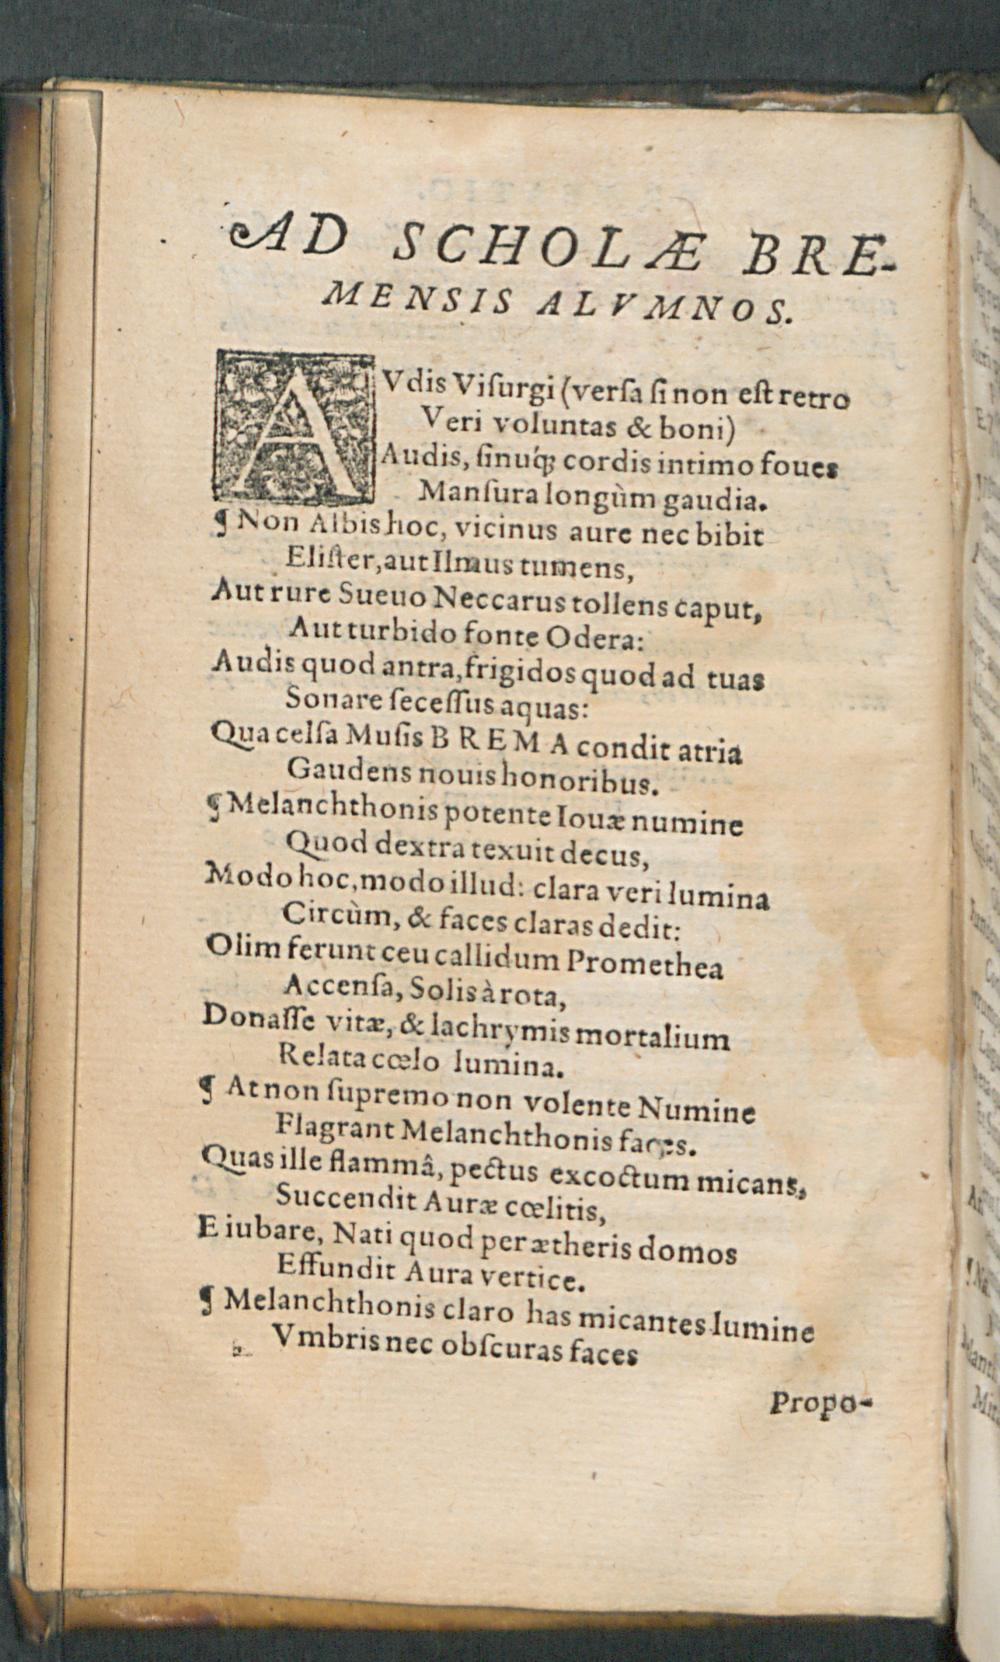 AD SCHOLÆ BRE-
MENSIS ALVMNOS.
AVdis Viſurgi (verſa ſi non eſt retro
Veri voluntas & boni)
Audis, ſinuq́; cordis intimo foues
Manſura longùm gaudia.
¶ Non Albis hoc, vicinus aure nec bibit
Eliſter, aut Ilmus tumens,
Aut rure Sueuo Neccarus tollens caput,
Aut turbido fonte Odera:
Audis quod antra, frigidos quod ad tuas
Sonare ſeceſſus aquas:
Qua celſa Muſis BREMA condit atria
Gaudens nouis honoribus.
¶ Melanchthonis potente Iouæ numine
Quod dextra texuit decus,
Modo hoc, modo illud: clara veri lumina
Circùm, & faces claras dedit:
Olim ferunt ceu callidum Promethea
Accenſa, Solis à rota,
Donaſſe vitæ, & lachrymis mortalium
Relata cœlo lumina.
¶ At non ſupremo non volente Numine
Flagrant Melanchthonis faces.
Quas ille flammâ, pectus excoctum micans,
Succendit Auræ cœlitis,
E iubare, Nati quod per ætheris domos
Effundit Aura vertice.
¶ Melanchthonis claro has micantes lumine
Vmbris nec obſcuras faces
Propo-